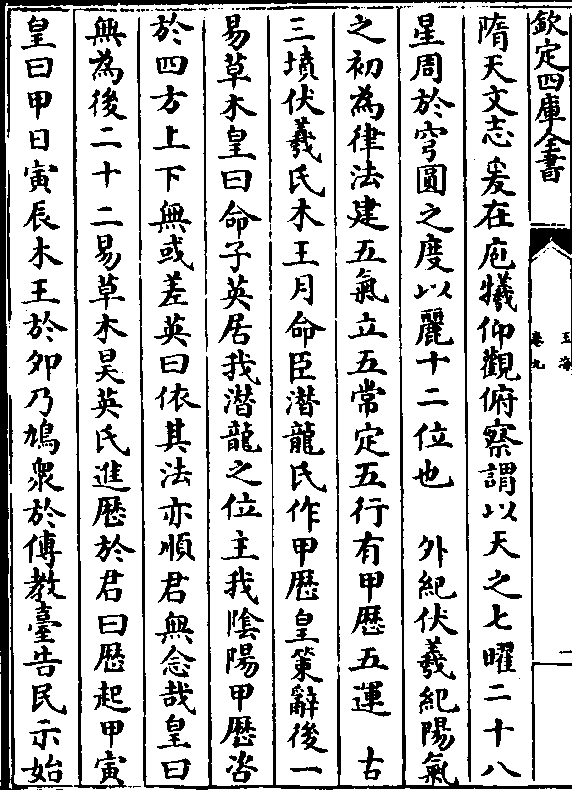 欽定四庫全書
玉海
卷九
二
隋天文志爰在庖犧仰觀俯察謂以天之七曜二十八
星周於穹圓之度以麗十二位也　外紀伏羲紀陽氣
之初為律法建五氣立五常定五行有甲歷五運　古
三墳伏羲氏木王月命臣潛龍氏作甲歷皇策辭後一
易草木皇曰命子英居我潛龍之位主我陰陽甲歷咨
於四方上下無或差英曰依其法亦順君無念哉皇曰
無為後二十二易草木昊英氏進歷於君曰歷起甲寅
皇曰甲日寅辰木王於夘乃鳩衆於傳教臺告民示始